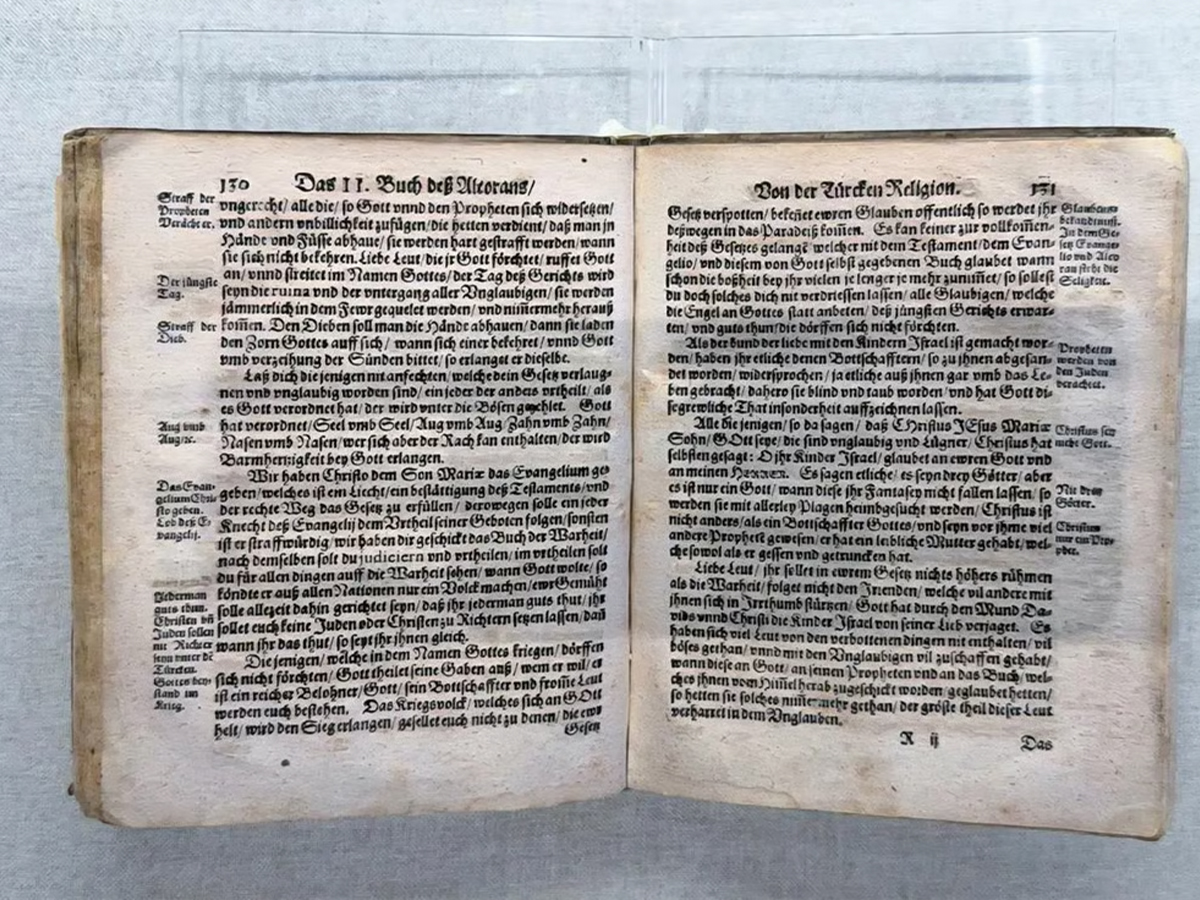 130 Das II. Buch deß Alcorans/
Straff der
Propheten
Verächter.
vngerecht/ alle die/ so Gott vnnd den Propheten sich widersetzen/
vnd andern vnbillichkeit zufügen/ die hetten verdient/ daß man jn
Hände vnd Füsse abhaue/ sie werden hart gestrafft werden/ wann
sie sich nicht bekehren. Liebe Leut/ die jr Gott förchtet/ ruffet Gott
an/ vnnd streitet im Namen Gottes/ der Tag deß Gerichts wird
Der jüngste
Tag.
seyn die ruina vnd der vntergang aller Vnglaubigen/ sie werden
jämmerlich in dem Fewr gequelet werden/ vnd nim̃ermehr herauß
Straff der
Dieb.
kom̃en. Den Dieben soll man die Hände abhauen/ dann sie laden
den Zorn Gottes auff sich/ wann sich einer bekehret/ vnnd Gott
vmb verzeihung der Sünden bittet/ so erlanget er dieselbe.
Laß dich die jenigen nit anfechten/ welche dein Gesetz verlaug-
nen vnd vnglaubig worden sind/ ein jeder der anders vrtheilt/ als
es Gott verordnet hat/ der wird vnter die Bösen gezehlet. Gott
Aug vmb
Aug/ꝛc.
hat verordnet/ Seel vmb Seel/ Aug vmb Aug/ Zahn vmb Zahn/
Nasen vmb Nasen/ wer sich aber der Rach kan enthalten/ der wird
Barmhertzigkeit bey Gott erlangen.
Wir haben Christo dem Son Mariæ das Evangelium ge-
Das Evan-
gelium Chri-
sto geben.
Lob deß E-
vangelij.
geben/ welches ist ein Liecht/ ein bestättigung deß Testaments/ vnd
der rechte Weg das Gesetz zu erfüllen/ derowegen solle ein jeder
Knecht deß Evangelij dem Vrtheil seiner Geboten folgen/ sonsten
ist er straffwürdig/ wir haben dir geschickt das Buch der Warheit/
nach demselben solt du judiciern vnd vrtheilen/ im vrtheilen solt
du für allen dingen auff die Warheit sehen/ wann Gott wolte/ so
Jederman
guts thun.
Christen vñ
Juden sollen
nit Richter
seyn vnter dẽ
Türcken.
Gottes bey-
stand im
Krieg.
köndte er auß allen Nationen nur ein Volck machen/ ewr Gemüht
solle allezeit dahin gerichtet seyn/ daß jhr jederman guts thut/ jhr
sollet euch keine Juden oder Christen zu Richtern setzen lassen/ dañ
wann jhr das thut/ so seyt jhr jhnen gleich.
Die jenigen/ welche in dem Namen Gottes kriegen/ dörffen
sich nicht förchten/ Gott theilet seine Gaben auß/ wem er wil/ er
ist ein reicher Belohner/ Gott/ sein Bottschaffter vnd from̃e Leut
werden euch bestehen. Das Kriegsvolck/ welches sich an GOtt
helt/ wird den Sieg erlangen/ gesellet euch nicht zu denen/ die ewr
Gesetz
Von der Türcken Religion. 131
Gesetz verspotten/ bekeñet ewren Glauben offentlich so werdet jhr
deßwegen in das Paradeiß kom̃en. Es kan keiner zur vollkom̃en-
heit deß Gesetzes gelangẽ welcher nit dem Testament/ dem Evan-
gelio/ vnd diesem von Gott selbst gegebenen Buch glaubet wann
schon die boßheit bey jhr vielen je lenger je mehr zunim̃et/ so sollest
du doch solches dich nit verdriessen lassen/ alle Glaubigen/ welche
die Engel an Gottes statt anbeten/ deß jüngsten Gerichts erwar-
ten/ vnd guts thun/ die dörffen sich nicht förchten.
Glaubens-
bekandtnuß.
In dem Ge-
setz Evange-
lio vnd Alco
ran steht die
Seligkeit.
Als der bund der liebe mit den Kindern Israel ist gemacht wor-
den/ haben jhr etliche denen Bottschafftern/ so zu jhnen abgesan-
det worden/ widersprochen/ ja etliche auß jhnen gar vmb das Le-
ben gebracht/ dahero sie blind vnd taub worden/ vnd hat Gott di-
se grewliche That insonderheit auffzeichnen lassen.
Propheten
werden von
den Juden
verachtet.
Alle die jenigen/ so da sagen/ daß CHristus JEsus Mariæ
Sohn/ GOtt seye/ die sind vnglaubig vnd Lügner/ Christus hat
selbsten gesagt: O jhr Kinder Israel/ glaubet an ewren Gott vnd
an meinen HERREN. Es sagen etliche/ es seyn drey Götter/ aber
es ist nur ein Gott/ wann diese jhr Fantasey nicht fallen lassen/ so
werden sie mit allerley Plagen heimbgesucht werden/ Christus ist
nicht anders/ als ein Bottschaffter Gottes/ vnd seyn vor jhme viel
andere Prophetẽ gewesen/ er hat ein leibliche Mutter gehabt/ wel-
che sowol als er gessen vnd getruncken hat.
Christus sey
nicht Gott.
Nit drey
Götter.
Christus
nur ein Pro-
phet.
Liebe Leut/ jhr sollet in ewrem Gesetz nichts höhers rühmen
als die Warheit/ folget nicht den Irrenden/ welche vil andere mit
jhnen sich in Irrthumb stürtzen/ Gott hat durch den Mund Da-
vids vnnd Christi die Kinder Israel von seiner Lieb verjaget. Es
haben sich viel Leut von den verbottenen dingen nit enthalten/ vil
böses gethan/ vnnd mit den Vnglaubigen vil zuschaffen gehabt/
wann diese an Gott/ an seinen Propheten vnd an das Buch/ wel-
ches jhnen vom Him̃el herab zugeschickt worden/ geglaubet hetten/
so hetten sie solches nim̃ermehr gethan/ der gröste theil dieser Leut
verharret in dem Vnglauben.
R ij Das